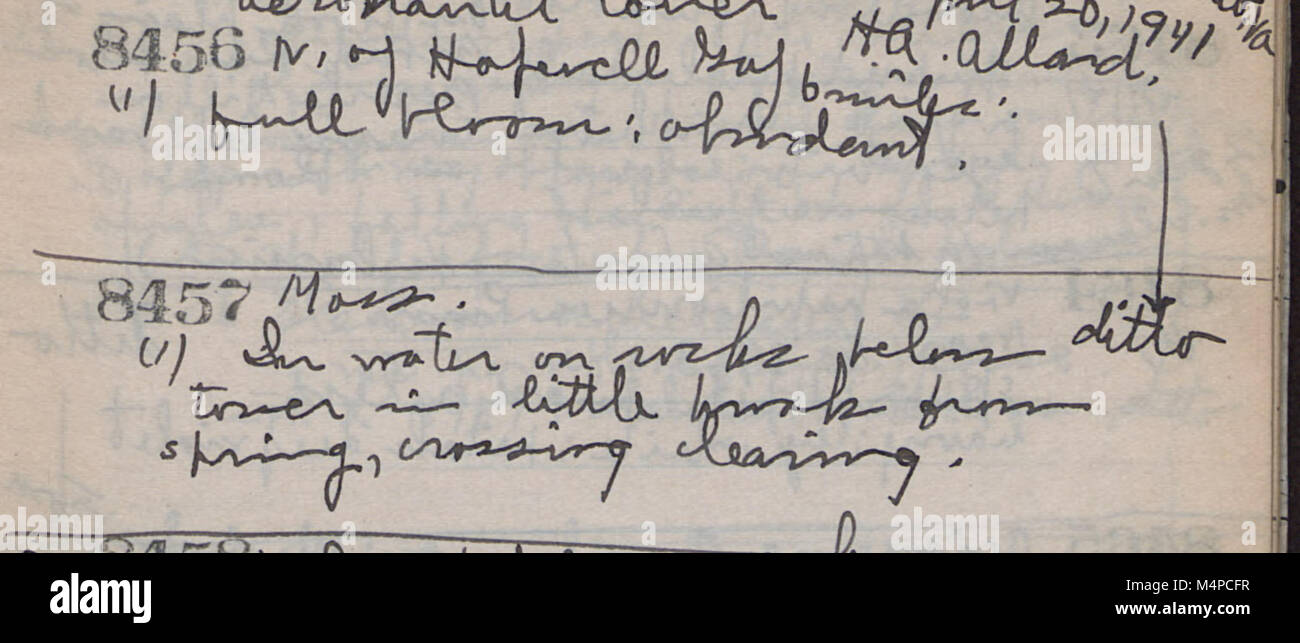 aeronautic tower
20, 1941
8456 N. of Hopewell Gap, 6 miles. H.A. Allard.
(1) full bloom; abundant.
8457 Moss.
(1) In water on rocks below ditto
tower in little brook from
spring, crossing clearing.
8458
alamy
Image ID: M4PCFR
www.alamy.com